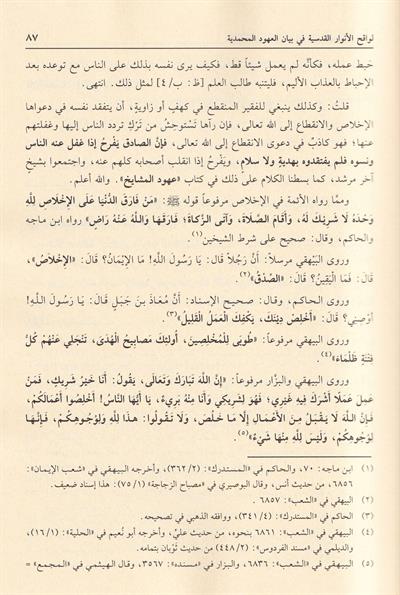 لواقح الأنوار القدسية في بيان العهود المحمدية ٨٧
حبط عمله، فكأنَّه لم يعمل شيئاً قط، فكيف يرى نفسه بذلك على الناس مع توعده بعد
الإحباط بالعذاب الأليم، فليتنبه طالب العلم [ظ: ب/٤] لمثل ذلك. انتهى.
قلتُ: وكذلك ينبغي للفقير المنقطع في كهفٍ أو زاويةٍ، أن يتفقد نفسه في دعواها
الإخلاص والانقطاع إلى الله تعالى، فإن رآها تَستوحشُ من تَركِ تردد الناس إليها وغفلتهم
عنها؛ فهو كاذبٌ في دعوى الانقطاع إلى الله تعالى، فإنَّ الصادق يَفْرحُ إذا غفل عنه الناس
ونسوه فلم يفتقدوه بهديةٍ ولا سلامٍ، ويَفْرحُ إذا انقلب أصحابه كلهم عنه، واجتمعوا بشيخٍ
آخر مرشد، كما بسطنا الكلام على ذلك في كتاب «عهود المشايخ». والله أعلم.
وممَّا رواه الأئمة في الإخلاص مرفوعاً قوله ﷺ: «مَنْ فَارَقَ الدُّنْيَا عَلَى الإِخْلاصِ لِلَّهِ
وَحْدَهُ لَا شَرِيكَ لَهُ، وَأَقَامَ الصَّلَاةَ، وَآتَى الزَّكاةَ؛ فَارَقَهَا وَاللَّهُ عَنْهُ رَاضٍ» رواه ابن ماجه
والحاكم، وقال: صحيح على شرط الشيخين(١).
وروى البَيْهقي مرسلاً: أنَّ رَجُلاً قَالَ: يَا رَسُولَ اللَّهِ! مَا الإِيْمَانُ؟ قَالَ: «الإِخْلَاصُ»،
قَالَ: فَمَا الْيَقِيْنُ؟ قَالَ: «الصِّدْقُ»(٢).
وروى الحاكم، وقال: صحيح الإسناد: أَنَّ مُعَاذَ بْنَ جَبَلٍ قَالَ: يَا رَسُولَ اللَّهِ!
أَوْصِنِي؟ قَالَ: «أَخْلِصْ دِيْنَكَ، يَكْفِكَ الْعَمَلُ الْقَلِيْلُ»(٣).
وروى البيهقي مرفوعاً: «طُوبَى لِلْمُخْلِصِينَ، أُولَئِكَ مَصَابِيحُ الْهُدَى، تَنْجَلِي عَنْهُمْ كُلُّ
فِتْنَةٍ ظَلْمَاءَ»(٤).
وروى البيهقي والبزَّار مرفوعاً: «إِنَّ اللَّهَ تَبَارَكَ وَتَعَالَى، يَقُولُ: أَنَا خَيْرُ شَرِيكٍ، فَمَنْ
عَمِلَ عَمَلًا أَشْرَكَ فِيهِ غَيْرِي؛ فَهُوَ لِشَرِيكِي وَأَنَا مِنْهُ بَرِيءٌ، يَا أَيُّهَا النَّاسُ! أَخْلِصُوا أَعْمَالَكُمْ،
فَإِنَّ اللَّهَ لَا يَقْبَلُ مِنَ الْأَعْمَالِ إِلَّا مَا خَلَصَ، وَلَا تَقُولُوا: هَذَا لِلَّهِ وَلِوُجُوهِكُمْ، فَإِنَّهَا
لِوُجُوهِكُمْ، وَلَيْسَ لِلَّهِ مِنْهَا شَيْءٌ»(٥).
(١) ابن ماجه: ٧٠، والحاكم في «المستدرك»: (٣٦٢/٢)، وأخرجه البيهقي في «شعب الإيمان»:
٦٨٥٦، من حديث أنس، وقال البوصيري في «مصباح الزجاجة» (٧٥/١): هذا إسناد ضعيف.
(٢) البيهقي في «الشعب»: ٦٨٥٧.
(٣) الحاكم في «المستدرك»: (٣٤١/٤)، ووافقه الذهبي في تصحيحه.
(٤) البيهقي في «الشعب»: ٦٨٦١ بنحوه، من حديث عليٍّ، وأخرجه أبو نُعيم في «الحلية»: (١٦/١)،
والديلمي في «مسند الفردوس»: (٤٤٨/٢) من حديث ثَوْبان بتمامه.
(٥) البيهقي في «الشعب»: ٦٨٣٦، والبزار في «مسنده»: ٣٥٦٧، وقال الهيثمي في «المجمع» =